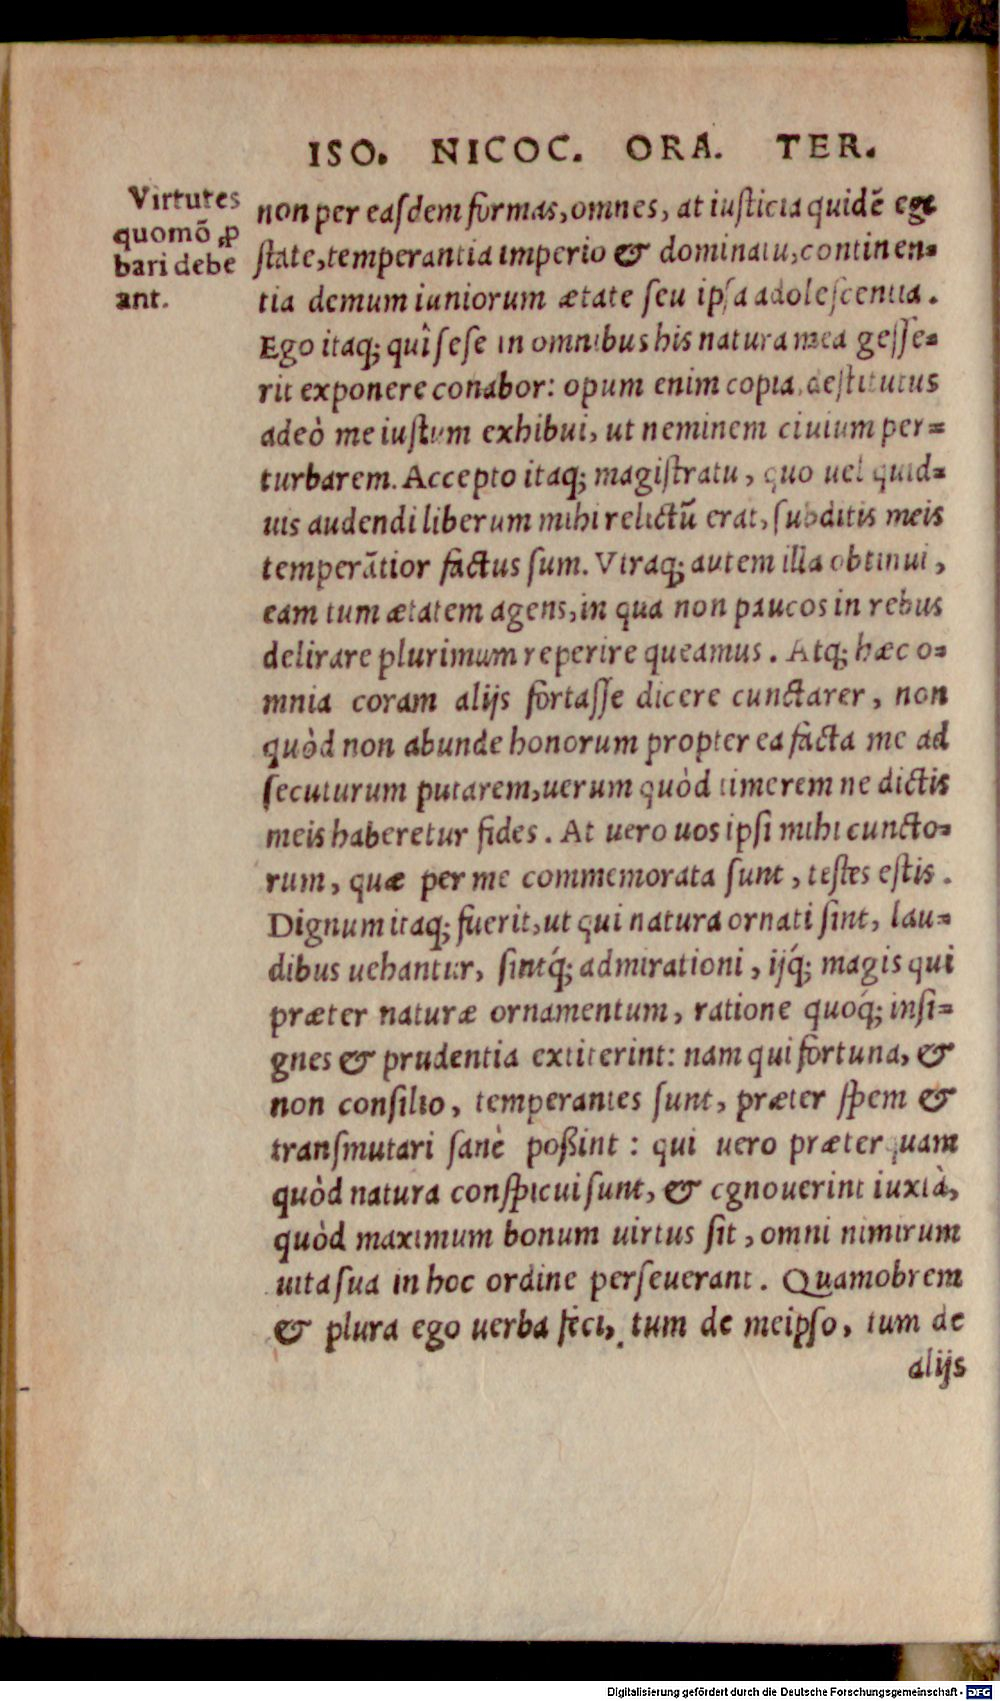 ISO. NICOC. ORA. TER.
Virtutes
quomõ ꝓ
bari debe
ant.
non per eaſdem formas, omnes, at iuſticia quidẽ ege
ſtate, temperantia imperio & dominatu, continen-
tia demum iuniorum ætate ſeu ipſa adoleſcentia.
Ego itaq; quî ſeſe in omnibus his natura mea geſſe-
rit exponere conabor: opum enim copia deſtitutus
adeò me iuſtum exhibui, ut neminem ciuium per-
turbarem. Accepto itaq; magiſtratu, quo uel quid-
uis audendi liberum mihi relictũ erat, ſubditis meis
temperãtior factus ſum. Vtraq; autem illa obtinui,
eam tum ætatem agens, in qua non paucos in rebus
delirare plurimum reperire queamus. Atq; hæc o-
mnia coram alijs fortaſſe dicere cunctarer, non
quòd non abunde honorum propter ea facta me ad
ſecuturum putarem, uerum quòd timerem ne dictis
meis haberetur fides. At uero uos ipſi mihi cuncto-
rum, quæ per me commemorata ſunt, teſtes eſtis.
Dignum itaq; fuerit, ut qui natura ornati ſint, lau-
dibus uehantur, ſintq́; admirationi, ijq́; magis qui
præter naturæ ornamentum, ratione quoq́; inſi-
gnes & prudentia extiterint: nam qui fortuna, &
non conſilio, temperantes ſunt, præter ſpem &
tranſmutari ſanè poßint: qui uero præterquam
quòd natura conſpicui ſunt, & cgnouerint iuxtà,
quòd maximum bonum uirtus ſit, omni nimirum
uita ſua in hoc ordine perſeuerant. Quamobrem
& plura ego uerba feci, tum de meipſo, tum de
alijs
Digitalisierung gefördert durch die Deutsche Forschungsgemeinschaft - DFG